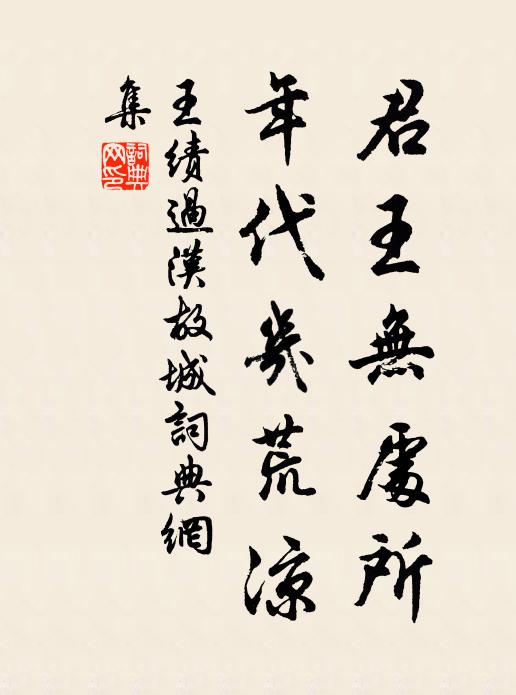 君王無處所
年代幾荒涼
王績過漢故城詞典網
集
詞典網印